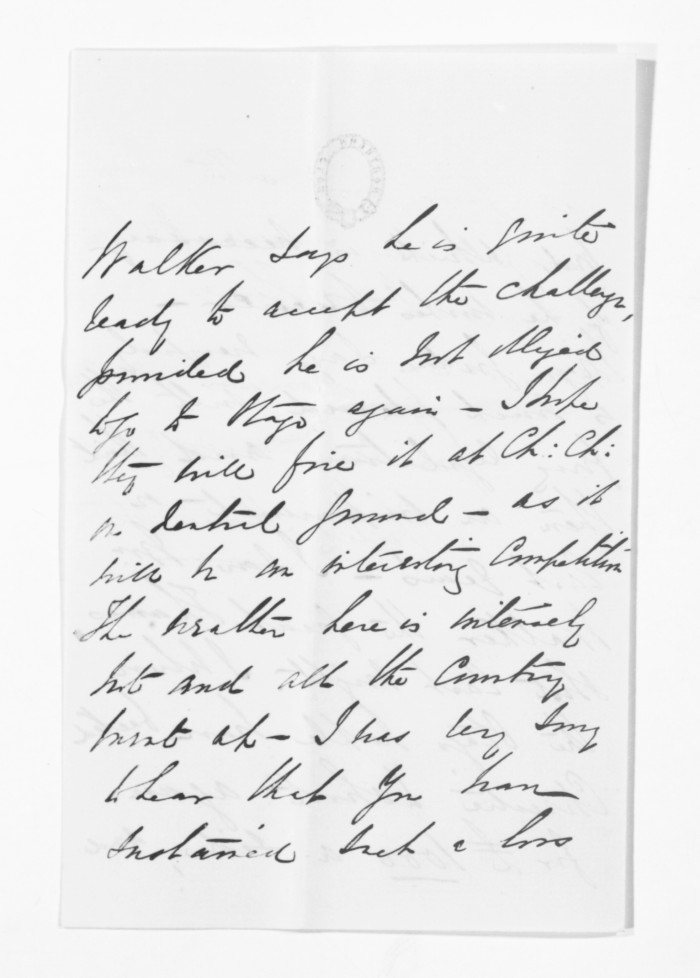 Walker says he is quite
ready to accept the challenge,
provided he is not obliged
to go to Otago again - I hope
they will fire it at Ch: Ch:
on neutral ground - as it
will be an interesting Competition
The weather here is intensely
hot and all the Country
burnt up - I was very sorry
to hear that you have
sustained such a loss